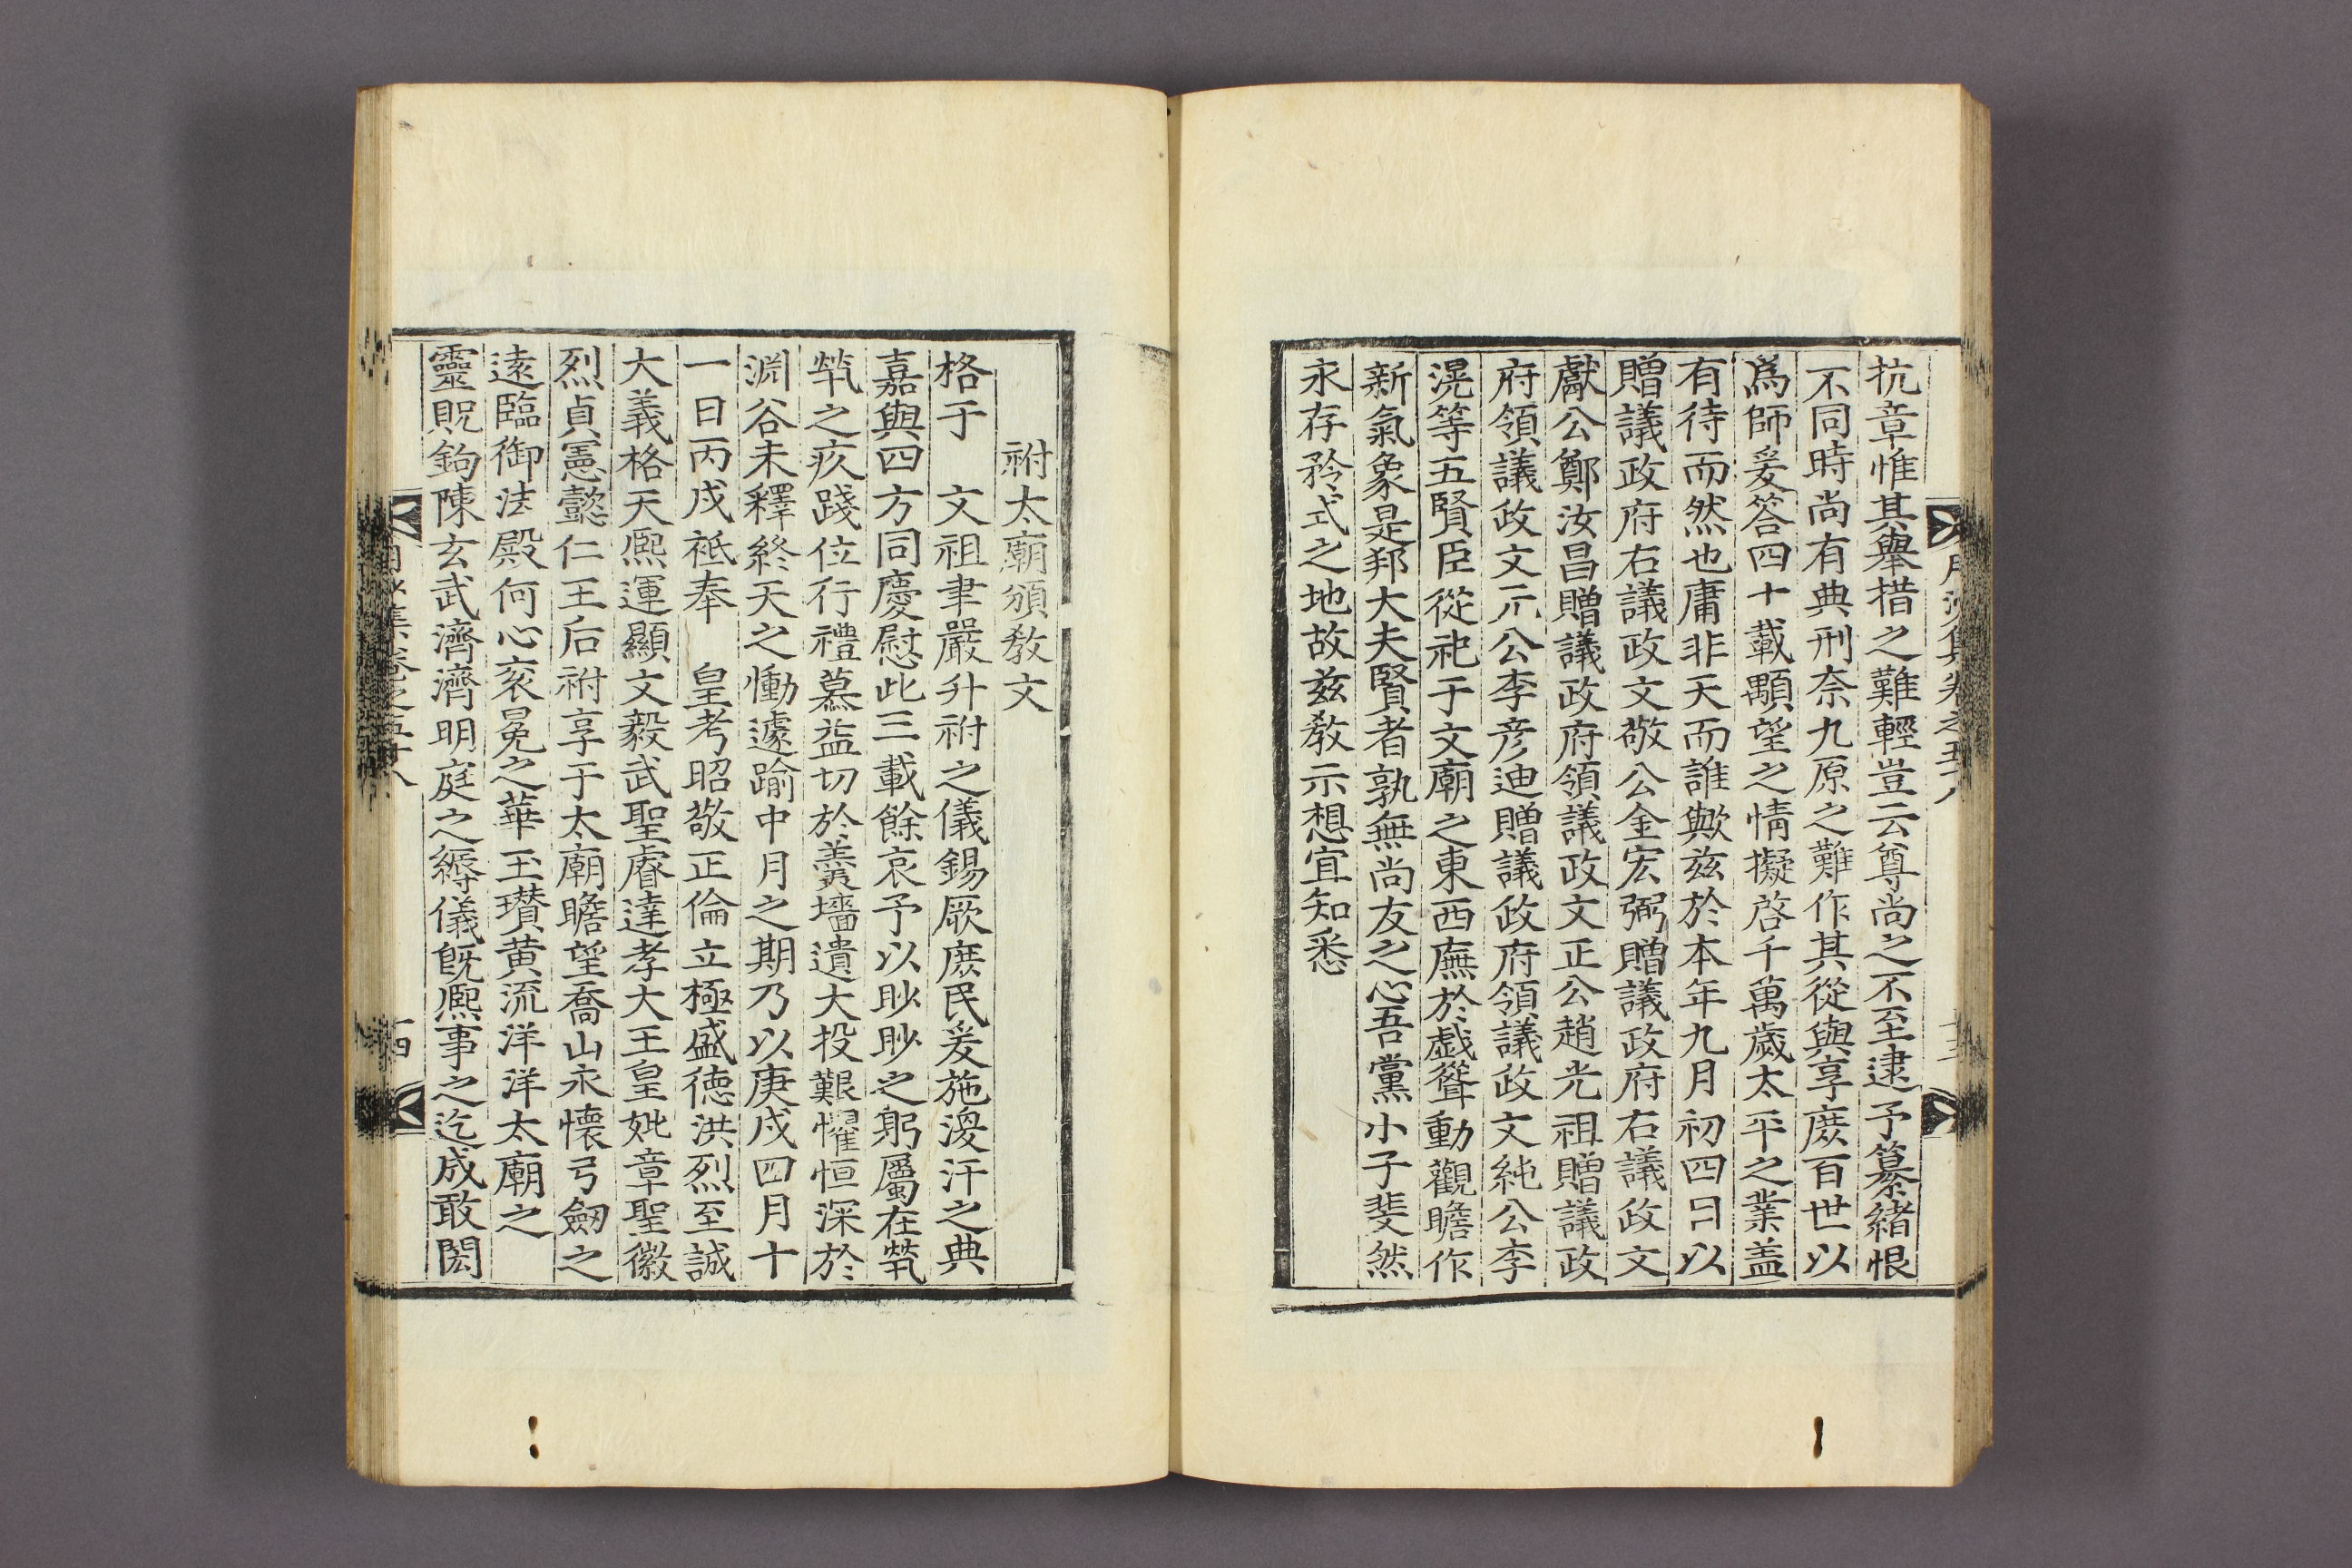 抗章惟其舉措之難輕豈云尊尚之不至逮予纂緖恨
不同時尚有典刑奈九原之難作其從與享庶百世以
爲師爰答四十載顒望之情擬啓千萬歲太平之業盖
有待而然也庸非天而誰歟玆於本年九月初四日以
贈議政府右議政文敬公金宏弼贈議政府右議政文
獻公鄭汝昌贈議政府領議政文正公趙光祖贈議政
府領議政文元公李彦迪贈議政府領議政文純公李
滉等五賢臣從祀于文廟之東西廡於戱聳動觀瞻作
新氣象是邦大夫賢者孰無尚友之心吾黨小子斐然
永存矜式之地故玆敎示想宜知悉
祔太廟頒敎文
格于 文祖聿嚴升祔之儀錫厥庶民爰施渙汗之典
嘉與四方同慶慰此三載餘哀予以眇眇之躬屬在煢
煢之疚踐位行禮慕益切於羹墻遺大投艱懼恒深於
淵谷未釋終天之慟遽踰中月之期乃以庚戌四月十
一日丙戌祗奉 皇考昭敬正倫立極盛德洪烈至誠
大義格天熙運顯文毅武聖睿達孝大王皇妣章聖徽
烈貞憲懿仁王后祔享于太廟瞻望喬山永懷弓劒之
遠臨御法殿何心袞冕之華玉瓚黃流洋洋太廟之
靈貺鉤陳玄武濟濟明庭之縟儀旣熙事之迄成敢閟